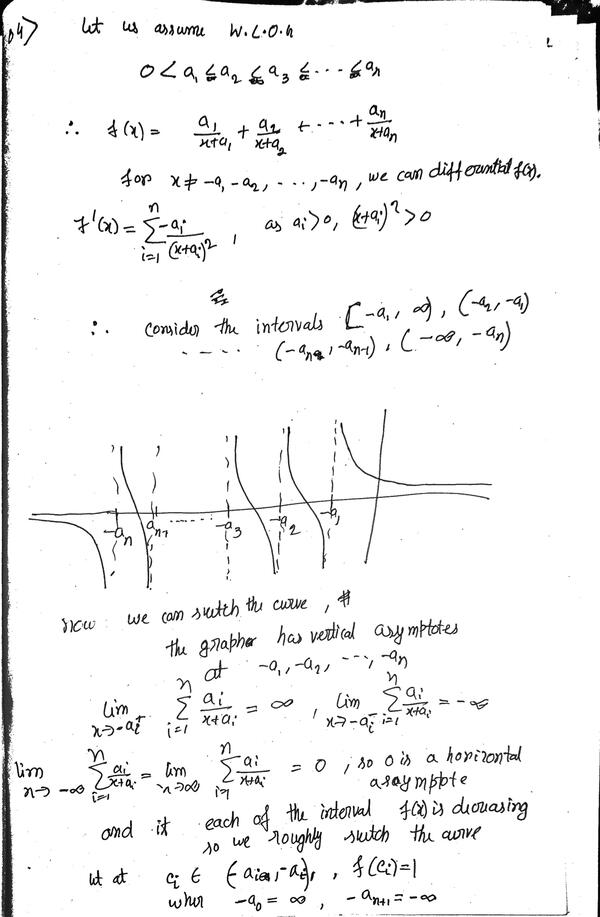 04) Let us assume W.L.O.G
0 < a₁ ≤ a₂ ≤ a₃ ≤ ... ≤ aₙ
∴ f(x) = a₁/(x+a₁) + a₂/(x+a₂) + ... + aₙ/(x+aₙ)
for x ≠ -a₁, -a₂, ..., -aₙ, we can differential f(x).
f'(x) = Σ_{i=1}^{n} -aᵢ/(x+aᵢ)², as aᵢ>0, (x+aᵢ)²>0
∴ consider the intervals [-a₁, ∞), (-a₂, -a₁)
..... (-aₙ, -aₙ₋₁), (-∞, -aₙ)
-aₙ aₙ₋₁ ....... -a₃ -a₂ -a₁
Now we can sketch the curve,
the grapher has vertical asymptotes
at -a₁, -a₂, ..., -aₙ
lim_{x→-aᵢ⁺} Σ_{i=1}^{n} aᵢ/(x+aᵢ) = ∞, lim_{x→-aᵢ⁻} Σ_{i=1}^{n} aᵢ/(x+aᵢ) = -∞
lim_{x→-∞} Σ_{i=1}^{n} aᵢ/(x+aᵢ) = lim_{x→∞} Σ_{i=1}^{n} aᵢ/(x+aᵢ) = 0, so 0 is a horizontal
asymptote
and it each of the interval f(x) is decreasing
so we roughly sketch the curve
let at cᵢ ∈ (-aᵢ₊₁, -aᵢ), f(cᵢ)=1
wher -a₀ = ∞, -aₙ₊₁ = -∞